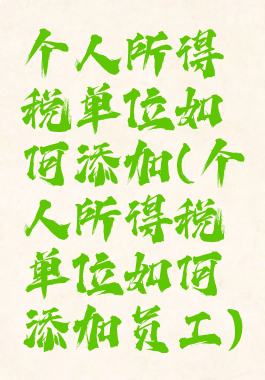 个人所得
税单位如
何添加(个
人所得税
单位如何
添加员工)